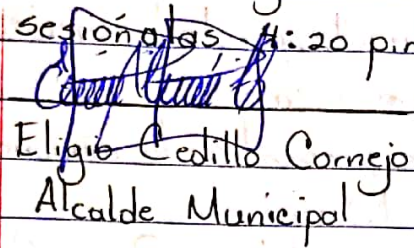 sesión a las 4:20 p.m
Eligio Cedillo Cornejo
Alcalde Municipal